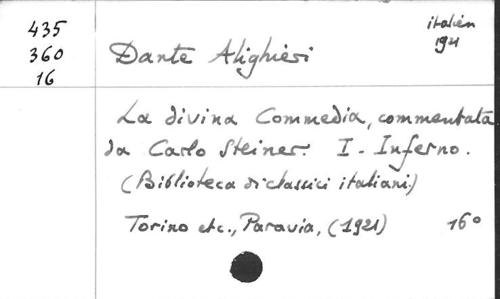 435
360
16
Dante Alighieri
italien
1921
La divina Commedia, commentata
da Carlo Steiner. I - Inferno.
(Biblioteca di classici italiani.)
Torino etc., Paravia, (1921) 16°